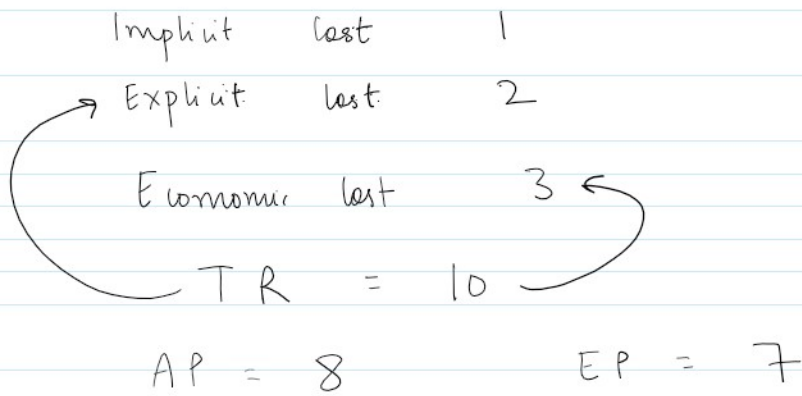 Implicit Cost 1
Explicit Cost 2
Economic Cost 3
TR = 10
AP = 8 EP = 7